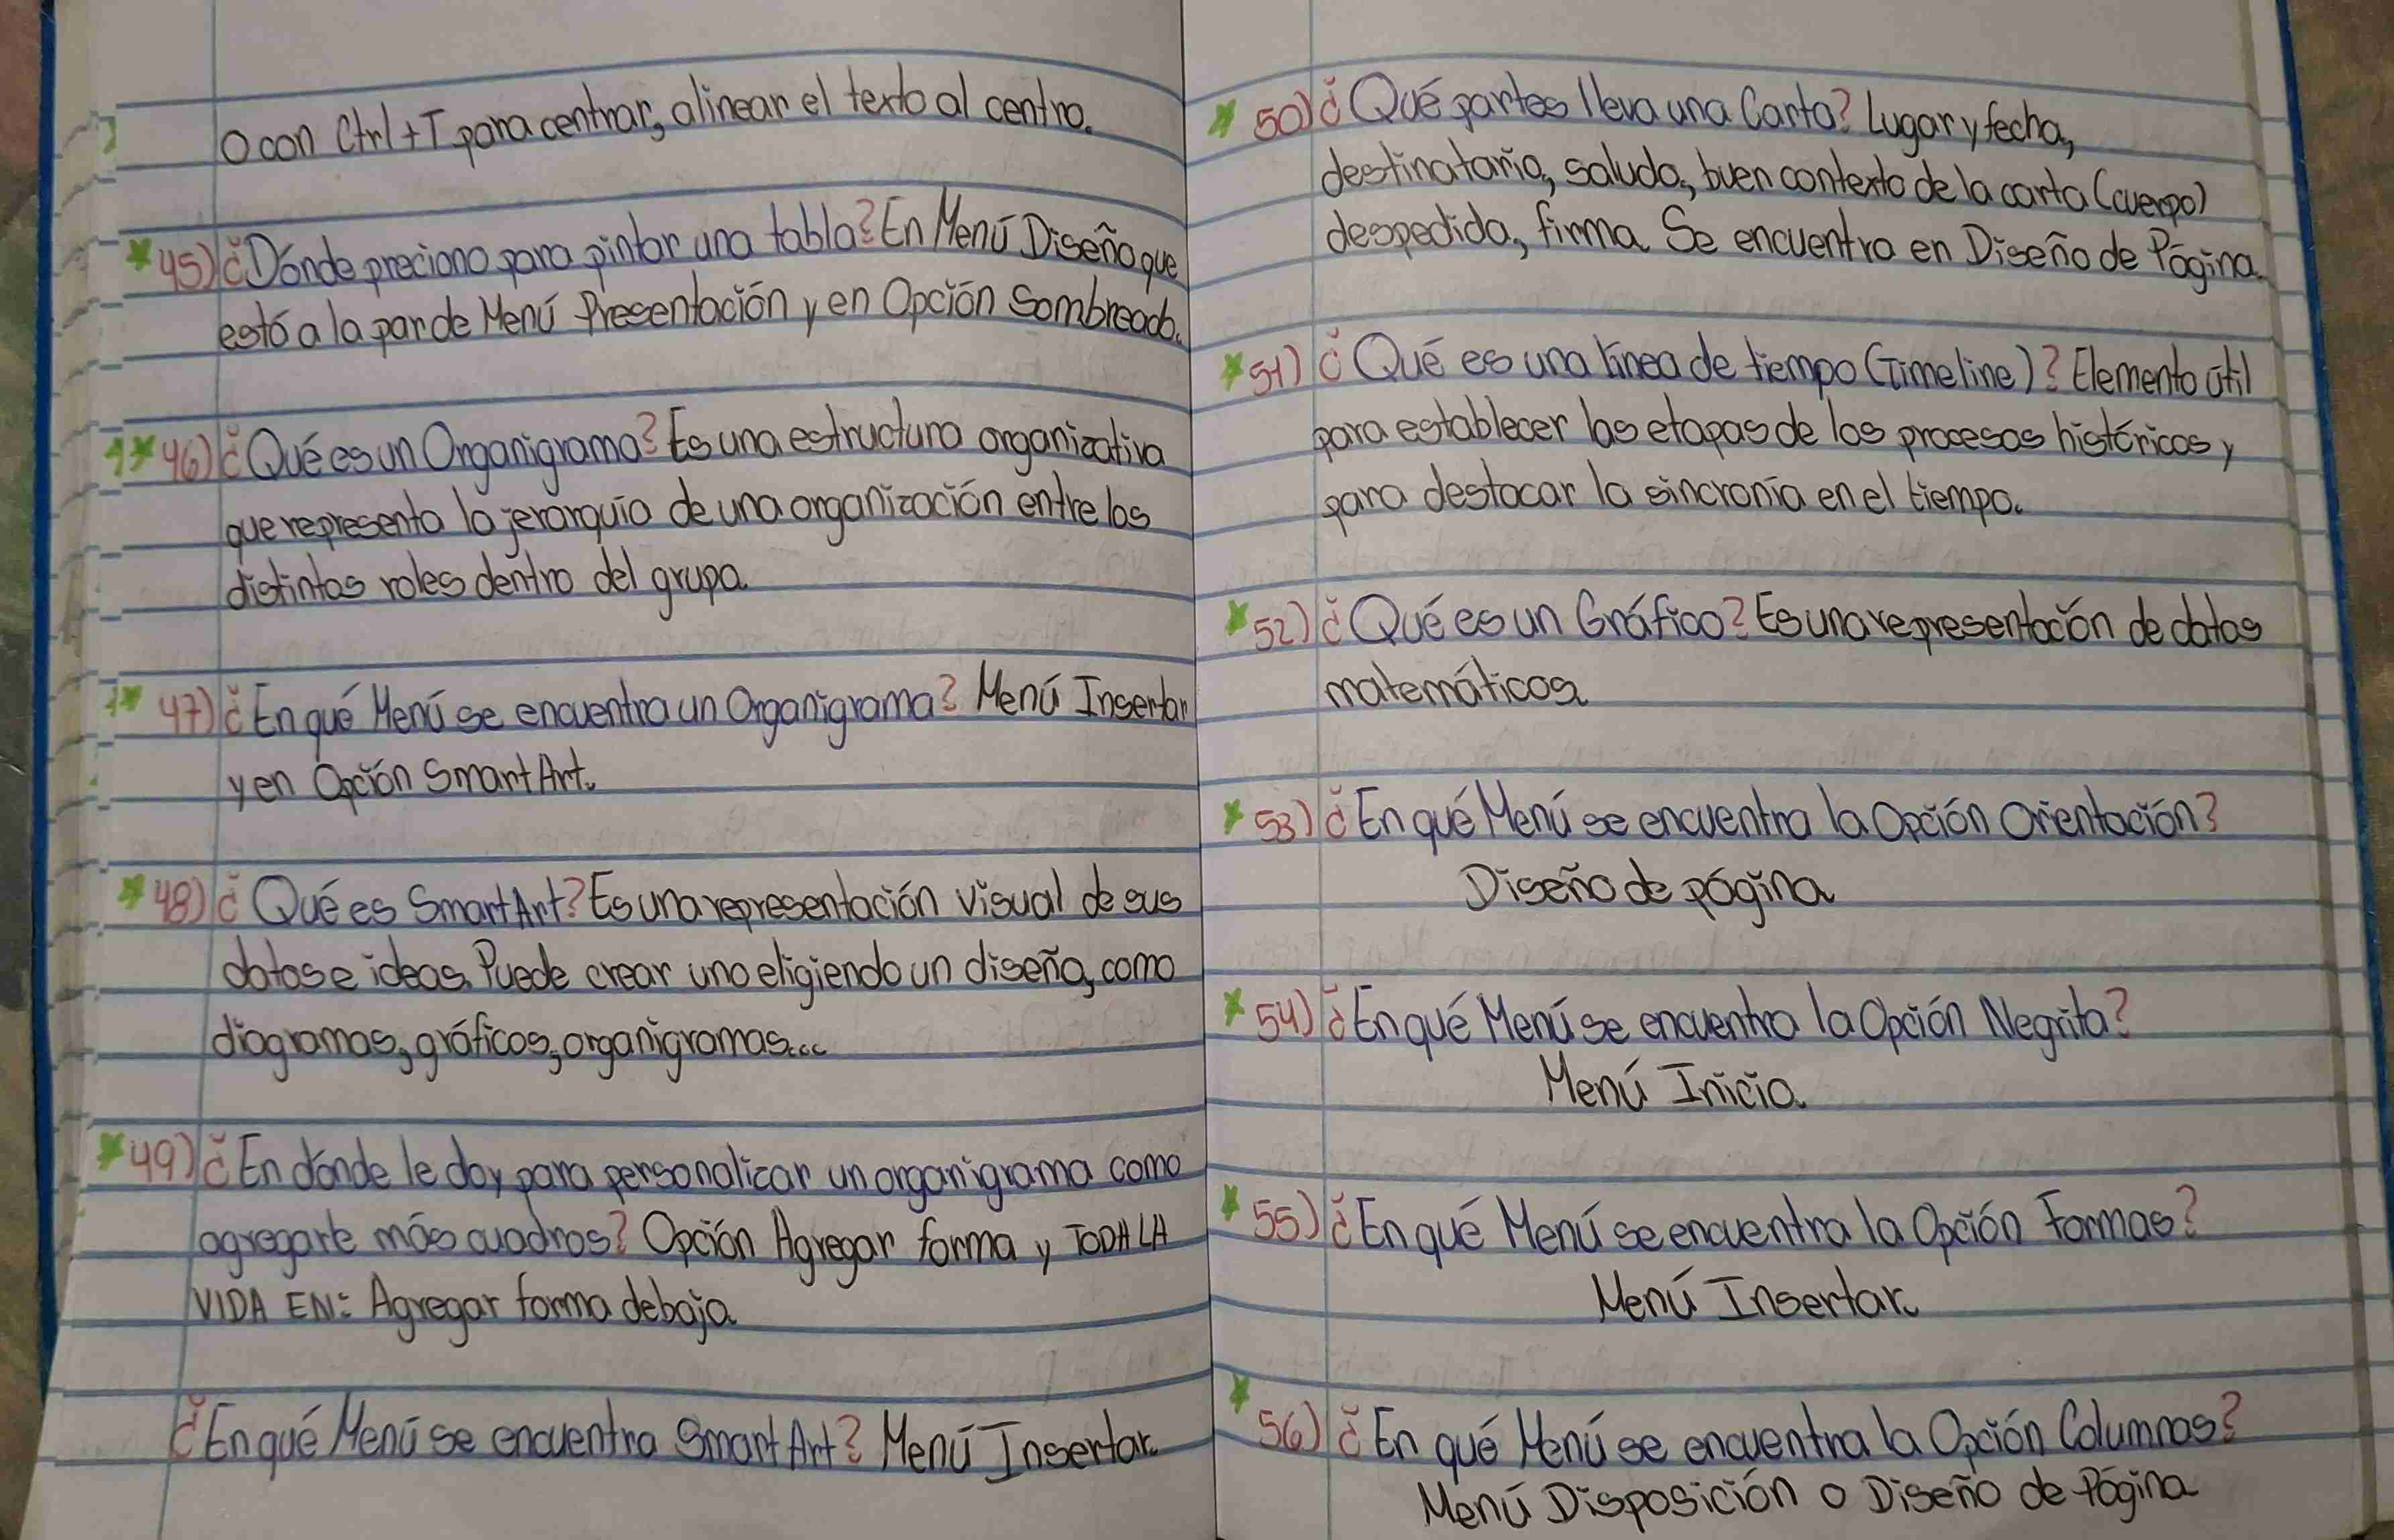 O con Ctrl+T para centrar, alinear el texto al centro.
45) ¿Dónde preciono para pintar una tabla? En Menú Diseño que
está a la par de Menú Presentación y en Opción Sombreado.
46) ¿Qué es un Organigrama? Es una estructura organizativa
que representa la jerarquía de una organización entre los
distintos roles dentro del grupo.
47) ¿En qué Menú se encuentra un Organigrama? Menú Insertar
y en Opción SmartArt.
48) ¿Qué es SmartArt? Es una representación visual de sus
datos e ideas. Puede crear uno eligiendo un diseño, como
diagramas, gráficos, organigramas...
49) ¿En dónde le doy para personalizar un organigrama como
agregarte más cuadros? Opción Agregar forma y TODA LA
VIDA EN: Agregar forma debajo.
¿En qué Menú se encuentra SmartArt? Menú Insertar.
50) ¿Qué partes lleva una Carta? Lugar y fecha,
destinatario, saludo, buen contexto de la carta (cuerpo)
despedida, firma. Se encuentra en Diseño de Página.
51) ¿Qué es una línea de tiempo (Timeline)? Elemento útil
para establecer las etapas de los procesos históricos y
para destacar la sincronía en el tiempo.
52) ¿Qué es un Gráfico? Es una representación de datos
matemáticos.
53) ¿En qué Menú se encuentra la Opción Orientación?
Diseño de página.
54) ¿En qué Menú se encuentra la Opción Negrita?
Menú Inicio.
55) ¿En qué Menú se encuentra la Opción Formas?
Menú Insertar.
56) ¿En qué Menú se encuentra la Opción Columnas?
Menú Disposición o Diseño de Página